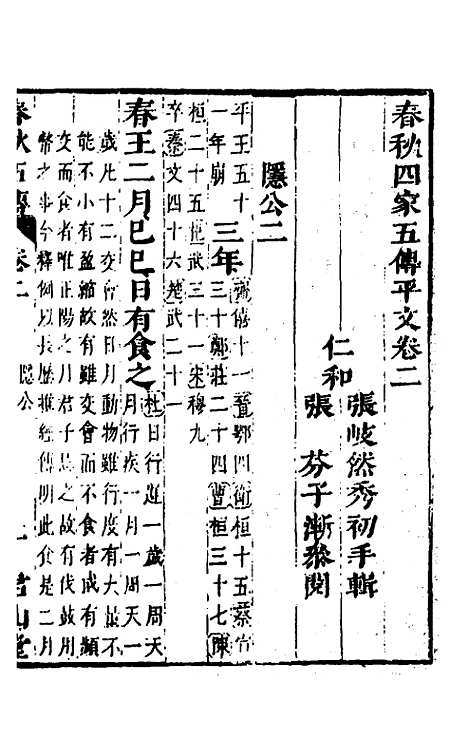 春秋四家五傳平文卷二
仁和
張岐然秀初手輯
張芬子漸參閱
隱公二
平王五十
一年崩
三年
齊僖十一晉鄂四衛桓十五蔡宣
三十鄭莊二十四曹桓三十七陳
桓二十五杞武三十一宋穆九
卒秦文四十六楚武二十一
春王二月己巳日有食之
杜日行遲一歲一周天
月行疾一月一周天一
歲凡十二交會然日月動物雖行度有大量不
能不小有盈縮故有雖交會而不食者或有頻
交而食者唯正陽之月君子忌之故有伐鼓用
幣之事今釋例以長歷推經傳明此食是二月
春秋五傳
卷二
隱公
山堂